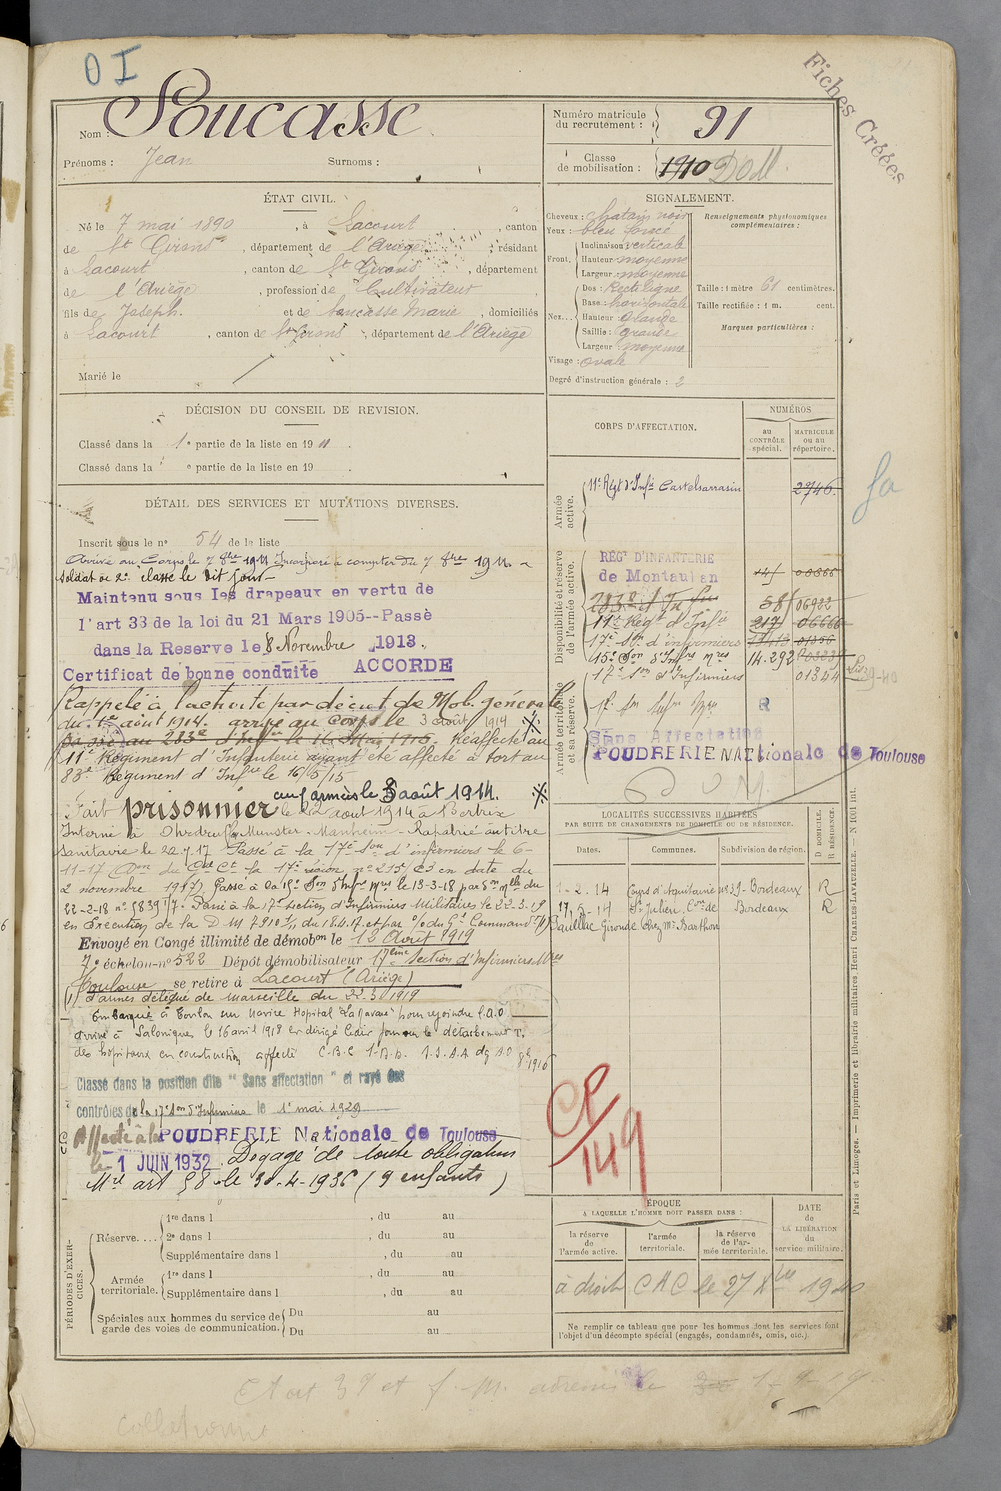 O I
Fiches Créées
Nom : Soucasse
Prénoms : Jean Surnoms :
Numéro matricule du recrutement : 91
Classe de mobilisation : 1910 DOM.
ÉTAT CIVIL.
Né le 7 mai 1890, à Lacourt, canton
de St Girons, département de l'Ariège, résidant
à Lacourt, canton de St Girons, département
de l'Ariège, profession de Cultivateur
fils de Joseph et de Soucasse Marie, domiciliés
à Lacourt, canton de St Girons, département de l'Ariège
Marié le
SIGNALEMENT.
Cheveux : chatain noir
Yeux : bleu foncé
Front. Inclinaison verticale
Hauteur moyenne
Largeur moyenne
Nez... Dos : Rectiligne
Base : horizontale
Hauteur : Grande
Saillie : Grande
Largeur : moyenne
Visage : ovale
Degré d'instruction générale : 2
Renseignements physionomiques complémentaires :
Taille : 1 mètre 61 centimètres.
Taille rectifiée : 1 m. cent.
Marques particulières :
DÉCISION DU CONSEIL DE REVISION.
Classé dans la 1e partie de la liste en 1911.
Classé dans la e partie de la liste en 19
DÉTAIL DES SERVICES ET MUTATIONS DIVERSES.
Inscrit sous le no 54 de la liste
Arrivé au Corps le 7 8bre 1911 Incorporé à compter du 7 8bre 1911.
Soldat de 2e classe le dit jour
Maintenu sous les drapeaux en vertu de
l'art 33 de la loi du 21 Mars 1905--Passé
dans la Reserve le 8 Novembre 1913.
Certificat de bonne conduite ACCORDE
Rappelé à l'activité par décret de Mob. générale
du 1er août 1914. arrivé au corps le 3 août 1914
Passé au 283e d'Infie le 16 Mars 1916. Réaffecté au
11e Régiment d'Infanterie ayant été affecté à tort au
83e Régiment d'Infie le 16/5/15
aux armées le 8 août 1914.
Fait prisonnier le 22 aout 1914 à Bertrix
Interné à Ohrdruf, Munster - Manheim - Rapatrié au titre
Sanitaire le 22 7 17 Passé à la 17e Son d'infirmiers le 6-
11-17 (Don du Gal Ct la 17e région no 2151/C3 en date du
2 novembre 1917) Passé à la 15e Son d'Infrs mres le 13-3-18 par Don mlle du
22-2-18 no 5839 1/7. Passé à la 17e section d'Infirmiers Militaires le 22.3.19
en Exécution de la D M
Envoyé en Congé illimité de démobon le 12 Août 1919
7e échelon no 522 Dépôt démobilisateur 17ème Section d'Infirmiers Mres
Toulouse se retire à Lacourt (Ariège)
(1) d'armes délégué de Marseille du 22.3.1919
Embarqué à Toulon sur navire Hopital Lafavau pour rejoindre l'A.O.
arrivé à Salonique le 16 avril 1918
des hôpitaux en construction affecté
Classé dans la position dite "Sans affectation" et rayé des
contrôles de la 17e Son d'Infirmiers le 1er mai 1929
Affecté à la POUDRERIE Nationale de Toulouse
le 1 JUIN 1932. Dégagé de toute obligation
Mre art 58 le 30-4-1936 (9 enfants)
CORPS D'AFFECTATION.
NUMÉROS
au CONTRÔLE spécial.
MATRICULE ou au répertoire.
Armée active.
11e Régt d'Infie Castelsarrasin 2746.
Disponibilité et réserve de l'armée active.
REGt D'INFANTERIE
de Montauban
283e d'Infie 58 06922
11e Régt d'Infie 217 06666
17e Son d'infirmiers
15e Son d'Infrs mres 14.292
17e Son d'Infirmiers 01344
Armée territoriale et sa réserve.
17e Son Infrs Mres R
Sans Affectation
POUDRERIE NATionale de Toulouse
D O M.
LOCALITÉS SUCCESSIVES HABITÉES
PAR SUITE DE CHANGEMENTS DE DOMICILE OU DE RÉSIDENCE.
Dates. Communes. Subdivision de région.
D DOMICILE. R RÉSIDENCE.
1-2-14 Cours d'Aquitaine no 39 - Bordeaux R
17-5-14 St Julien, Con de Bordeaux R
Pauillac Gironde chez Mr Barthon
CP/149
ÉPOQUE
A LAQUELLE L'HOMME DOIT PASSER DANS :
la réserve de l'armée active.
l'armée territoriale.
la réserve de l'armée territoriale.
DATE de LA LIBÉRATION du service militaire.
à droit CAC le 27 Xbre 1940
Ne remplir ce tableau que pour les hommes dont les services font l'objet d'un décompte spécial (engagés, condamnés, omis, etc.).
PÉRIODES D'EXERCICES.
Réserve.... 1re dans l , du au
2e dans l , du au
Supplémentaire dans l , du au
Armée territoriale. 1re dans l , du au
Supplémentaire dans l , du au
Spéciales aux hommes du service de garde des voies de communication. Du au
Du au
Paris et Limoges. — Imprimerie et librairie militaires Henri CHARLES-LAVAUZELLE.